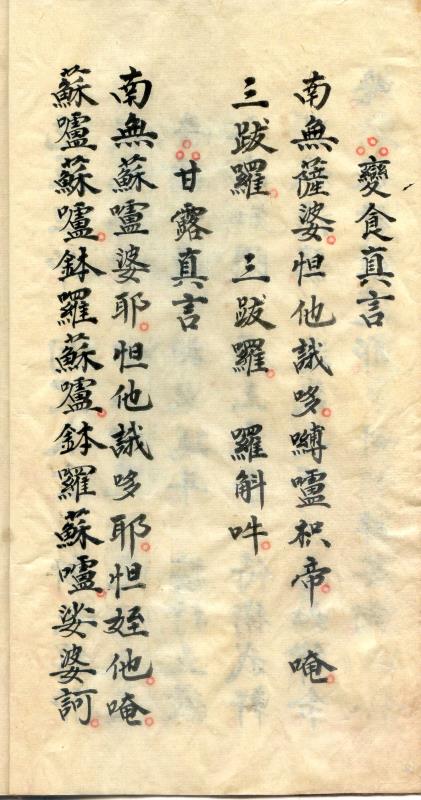 變食真言
南無薩婆怛他誐哆嚩嚧枳帝 唵
三跋羅 三跋羅 羅斛吽
甘露真言
南無蘇嚧婆耶怛他誐哆耶怛姪他唵
蘇嚧蘇嚧鉢羅蘇嚧鉢羅蘇嚧娑婆訶